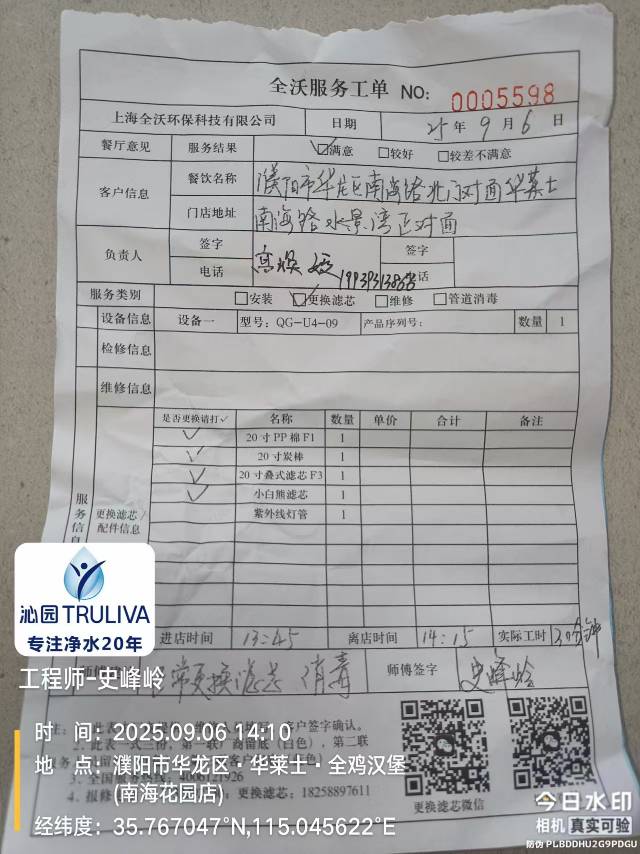 全沃服务工单 NO: 0005598
上海全沃环保科技有限公司 日期 25年9月6日
餐厅意见 服务结果 ☑满意 □较好 □较差不满意
客户信息 餐饮名称 濮阳市华龙区南海路北门对面华莱士
门店地址 南海路水景湾正对面
负责人 签字 签字
电话 电话
服务类别 □安装 ☑更换滤芯 □维修 □管道消毒
设备信息 设备一 型号: QG-U4-09 产品序列号: 数量 1
检修信息
维修信息
服务信息 更换滤芯/配件信息
是否更换请打✓ 名称 数量 单价 合计 备注
✓ 20寸PP棉F1 1
✓ 20寸炭棒 1
✓ 20寸叠式滤芯F3 1
✓ 小白熊滤芯 1
紫外线灯管 1
进店时间 13:45 离店时间 14:15 实际工时 30分钟
常更换滤芯 消毒 师傅签字 史峰岭
客户签字确认。
2.此表一式三份,第一联 商留底(白色),第二联
3.全国服务热线: 4006121926
4.报修 18258897611
更换滤芯微信
沁园TRULIVA
专注净水20年
工程师-史峰岭
时 间: 2025.09.06 14:10
地 点: 濮阳市华龙区·华莱士·全鸡汉堡
(南海花园店)
经纬度: 35.767047°N,115.045622°E
今日水印
相机 真实可验
防伪 PLBDDHU2G9PDGU